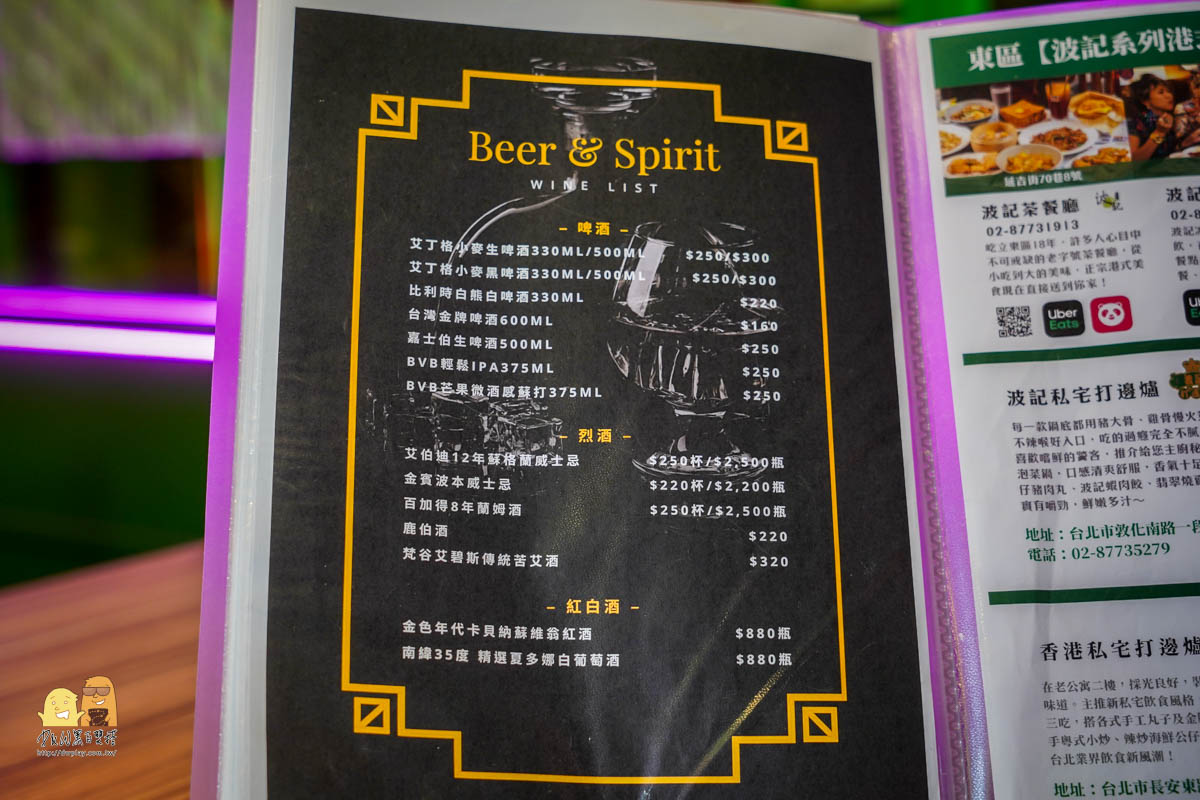 Beer & Spirit
WINE LIST
– 啤酒 –
艾丁格小麥生啤酒330ML/500ML $250/$300
艾丁格小麥黑啤酒330ML/500ML $250/$300
比利時白熊白啤酒330ML $220
台灣金牌啤酒600ML $160
嘉士伯生啤酒500ML $250
BVB輕鬆IPA375ML $250
BVB芒果微酒感蘇打375ML $250
– 烈酒 –
艾伯迪12年蘇格蘭威士忌 $250杯/$2,500瓶
金賓波本威士忌 $220杯/$2,200瓶
百加得8年蘭姆酒 $250杯/$2,500瓶
鹿伯酒 $220
梵谷艾碧斯傳統苦艾酒 $320
– 紅白酒 –
金色年代卡貝納蘇維翁紅酒 $880瓶
南緯35度 精選夏多娜白葡萄酒 $880瓶
東區【波記系列港
延吉街70巷8號
波記茶餐廳
02-87731913
吃立東區18年，許多人心目中
不可或缺的老字號茶餐廳，從
小吃到大的美味，正宗港式美
食現在直接送到你家！
Uber
Eats
波記
02-8
波記
飲、
餐點
餐、
波記私宅打邊爐
每一款鍋底都用豬大骨、雞骨慢火
不辣喉好入口，吃的過癮完全不膩
喜歡嚐鮮的饕客，推介給您主廚秘
泡菜鍋，口感清爽舒服，香氣十足
仔豬肉丸、波記蝦肉餃、翡翠燒賣
實有嚼勁，鮮嫩多汁～
地址：台北市敦化南路一段
電話：02-87735279
香港私宅打邊爐
在老公寓二樓，採光良好，
味道。主推新私宅飲食風格
三吃，搭各式手工丸子及金
手粵式小炒、辣炒海鮮公仔
台北業界飲食新風潮！
地址：台北市長安東
http://dwplay.com.tw/